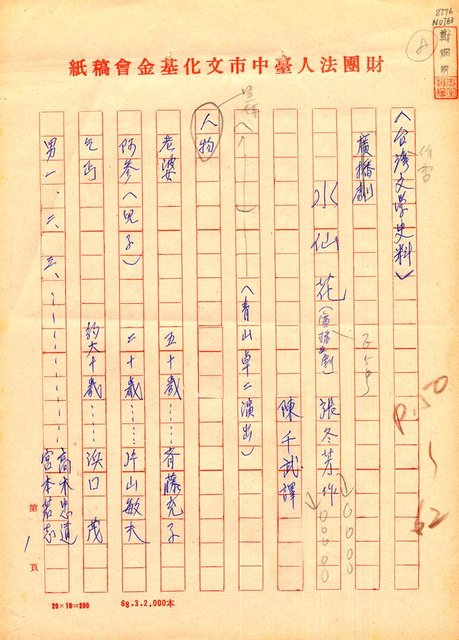 8776
N0763
8
財團法人臺中市文化基金會稿紙
(台灣文學史料)
廣播劇
水仙花(廣播劇) 張冬芳作
陳千武譯
(青山卓二演出)
人物
老婆 五十歲……齊藤充子
阿參(兒子) 二十歲……片山敏夫
乞丐 約六十歲……浜口茂
男一、二、三、……高木忠道
宮本茗志
P.50
62
第1頁
20×10=200
68.3.2,000本